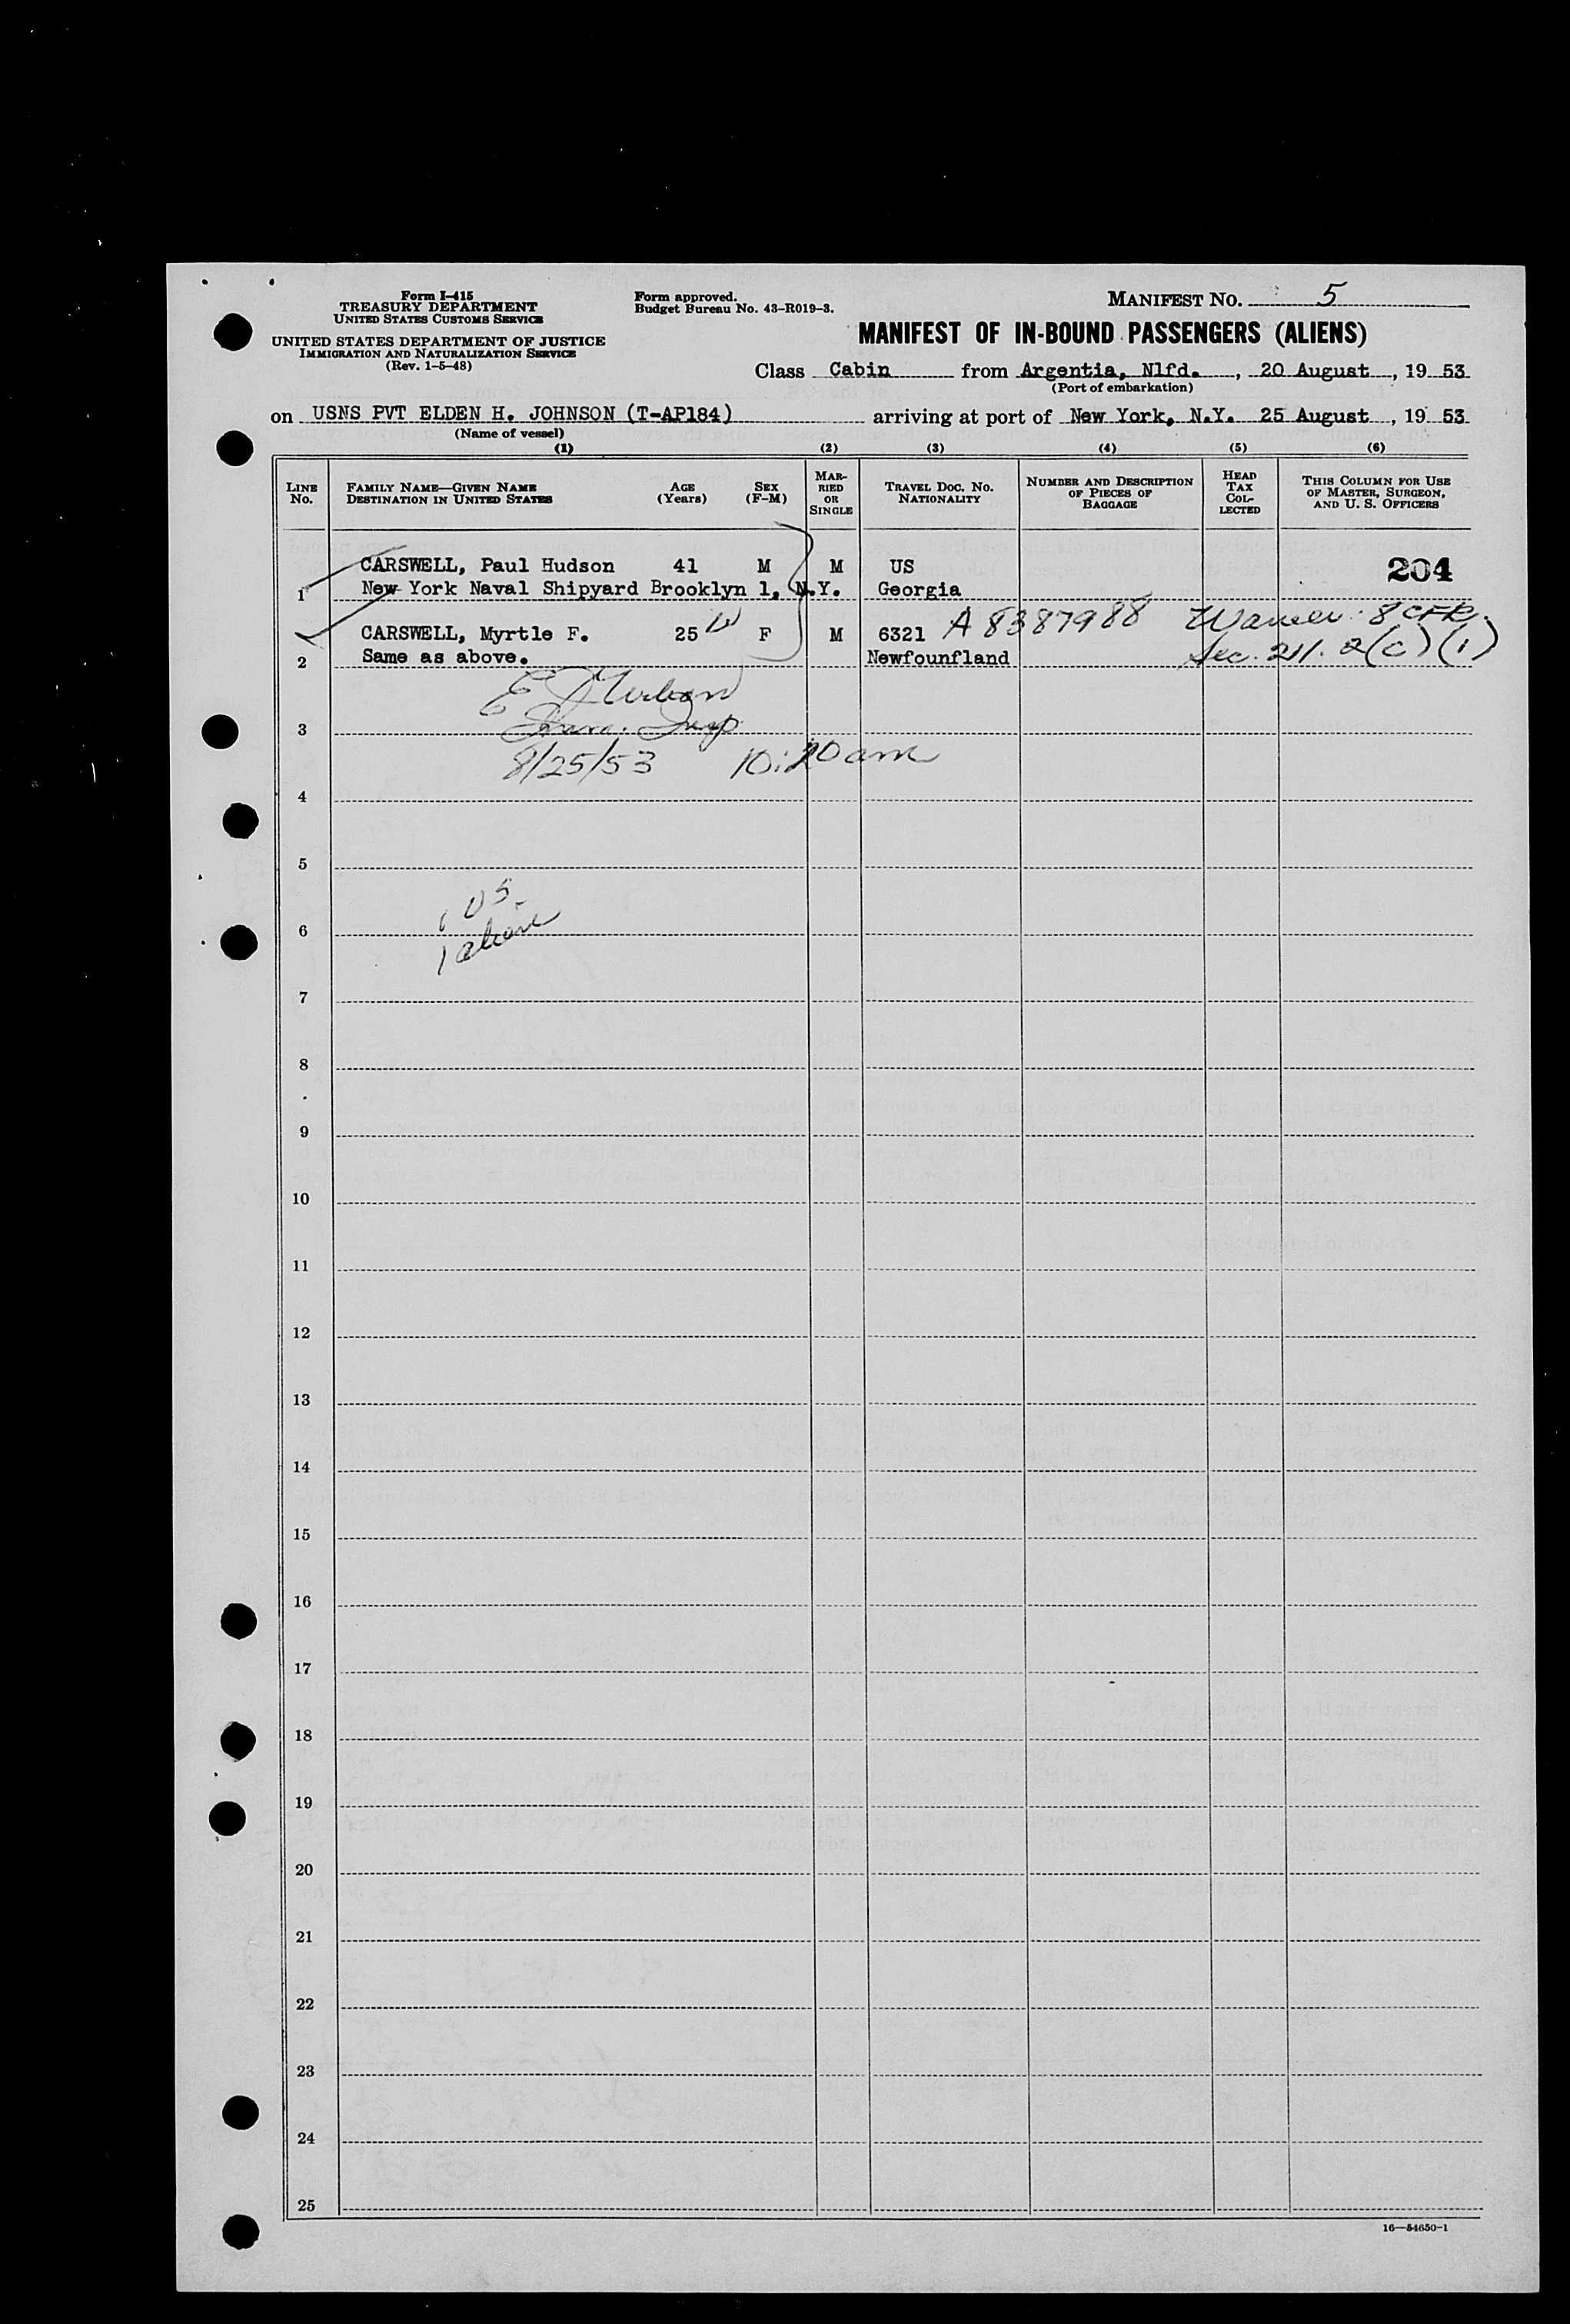 Form I-415
TREASURY DEPARTMENT
UNITED STATES CUSTOMS SERVICE
UNITED STATES DEPARTMENT OF JUSTICE
IMMIGRATION AND NATURALIZATION SERVICE
(Rev. 1-5-48)
Form approved.
Budget Bureau No. 43-R019-3.
MANIFEST NO. 5
MANIFEST OF IN-BOUND PASSENGERS (ALIENS)
Class Cabin from Argentia, Nlfd., 20 August, 19 53
(Port of embarkation)
on USNS PVT ELDEN H. JOHNSON (T-AP184) arriving at port of New York, N.Y. 25 August, 19 53
(Name of vessel)
(1) (2) (3) (4) (5) (6)
LINE No. FAMILY NAME—GIVEN NAME DESTINATION IN UNITED STATES AGE (Years) SEX (F-M) MARRIED OR SINGLE TRAVEL DOC. NO. NATIONALITY NUMBER AND DESCRIPTION OF PIECES OF BAGGAGE HEAD TAX COLLECTED THIS COLUMN FOR USE OF MASTER, SURGEON, AND U. S. OFFICERS
CARSWELL, Paul Hudson 41 M M US 204
1 New York Naval Shipyard Brooklyn 1, N.Y. Georgia
CARSWELL, Myrtle F. 25 W F M 6321 A 8387988 8 CFR
2 Same as above. Newfounfland Sec. 211.2(c)(1)
3
8/25/53 10:20 am
4
5
1 US
6
1 alien
7
8
9
10
11
12
13
14
15
16
17
18
19
20
21
22
23
24
25
16—54650-1